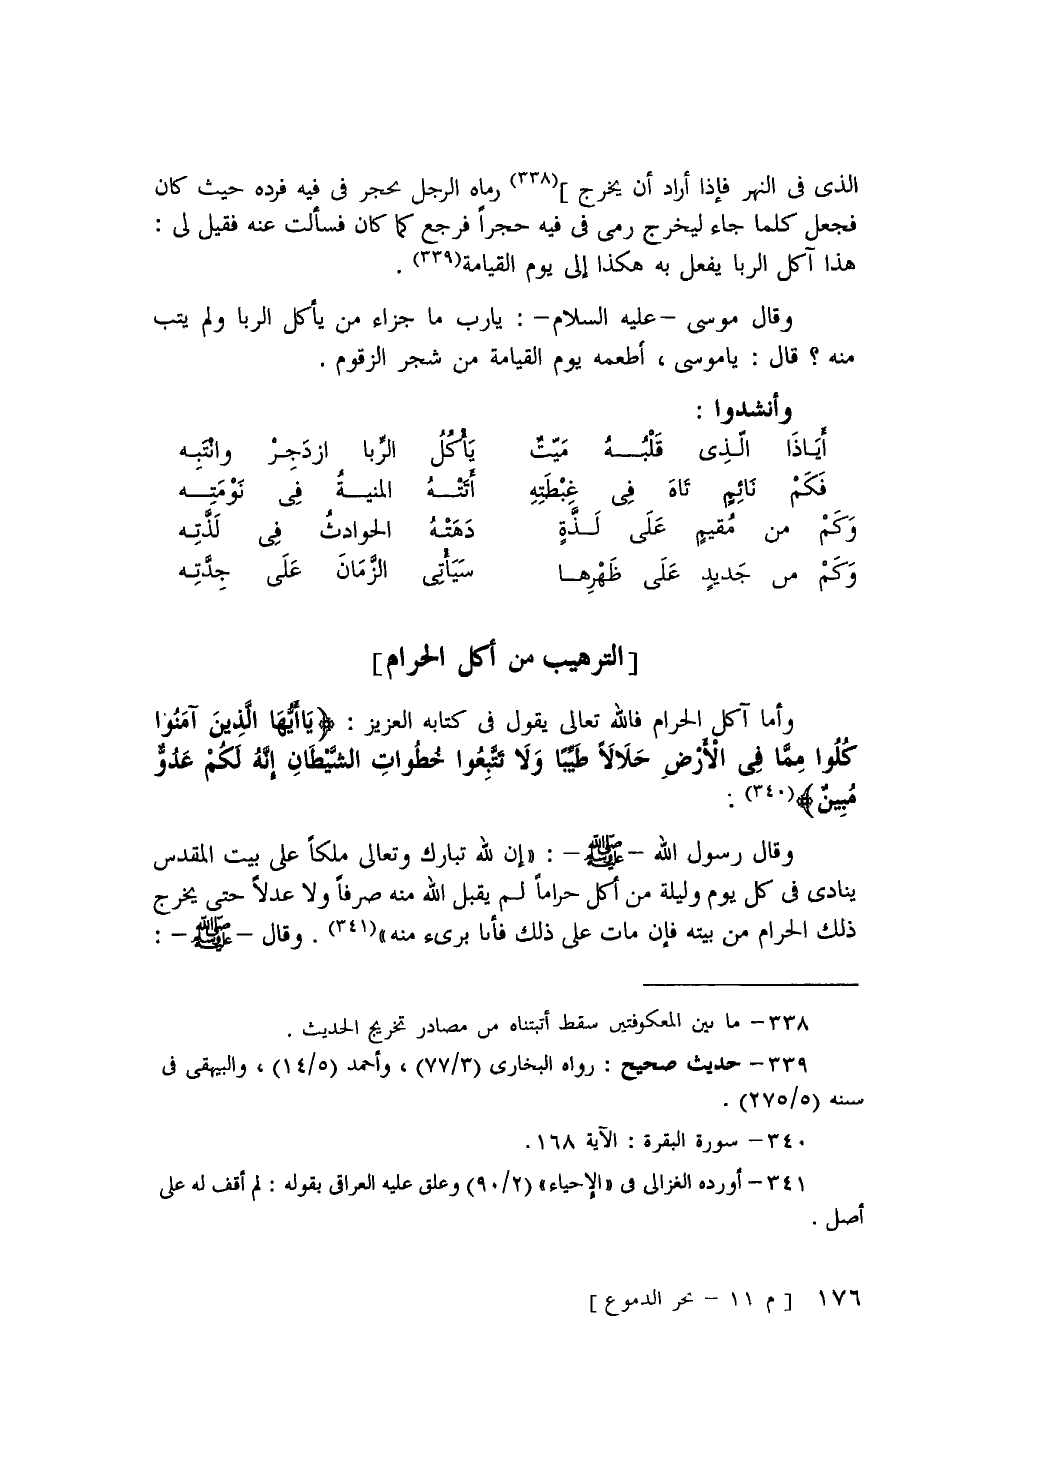 الذى فى النهر فإذا أراد أن يخرج ](٣٣٨) رماه الرجل بحجر فى فيه فرده حيث كان
فجعل كلما جاء ليخرج رمى فى فيه حجراً فرجع كما كان فسألت عنه فقيل لى :
هذا آكل الربا يفعل به هكذا إلى يوم القيامة(٣٣٩) .
وقال موسى –عليه السلام– : يارب ما جزاء من يأكل الربا ولم يتب
منه ؟ قال : ياموسى ، أطعمه يوم القيامة من شجر الزقوم .
وأنشدوا :
أَيَاذَا الَّذِى قَلْبُهُ مَيّتٌ يَأْكُلُ الرِّبا ازدَجِرْ وانْتَبِه
فَكَمْ نَائِمٍ تَاهَ فِى غِبْطَتِهِ أَتَتْهُ المنيةُ فِى نَوْمَتِه
وَكَمْ من مُقيمٍ عَلَى لَذَّةٍ دَهَتْهُ الحوادثُ فِى لَذَّتِه
وَكَمْ من جَديدٍ عَلَى ظَهْرِها سَيَأْتِى الزَّمَانَ عَلَى جِدَّتِه
[الترهيب من أكل الحرام]
وأما آكل الحرام فالله تعالى يقول فى كتابه العزيز : ﴿يَاأَيُّهَا الَّذِينَ آمَنُوا
كُلُوا مِمَّا فِى الْأَرْضِ حَلَالاً طَيِّبًا وَلَا تَتَّبِعُوا خُطُواتِ الشَّيْطَانِ إِنَّهُ لَكُمْ عَدُوٌّ
مُبِينٌ﴾(٣٤٠) :
وقال رسول الله –ﷺ– : «إن لله تبارك وتعالى ملكاً على بيت المقدس
ينادى فى كل يوم وليلة من أكل حراماً لم يقبل الله منه صرفاً ولا عدلاً حتى يخرج
ذلك الحرام من بيته فإن مات على ذلك فأنا برىء منه»(٣٤١) . وقال –ﷺ– :
٣٣٨– ما بين المعكوفتين سقط أتبتناه من مصادر تخريج الحديث .
٣٣٩– حديث صحيح : رواه البخارى (٧٧/٣) ، وأحمد (١٤/٥) ، والبيهقى فى
سننه (٢٧٥/٥) .
٣٤٠– سورة البقرة : الآية ١٦٨.
٣٤١– أورده الغزالى فى «الإحياء» (٩٠/٢) وعلق عليه العراقى بقوله : لم أقف له على
أصل .
١٧٦ [ م ١١ – بحر الدموع ]